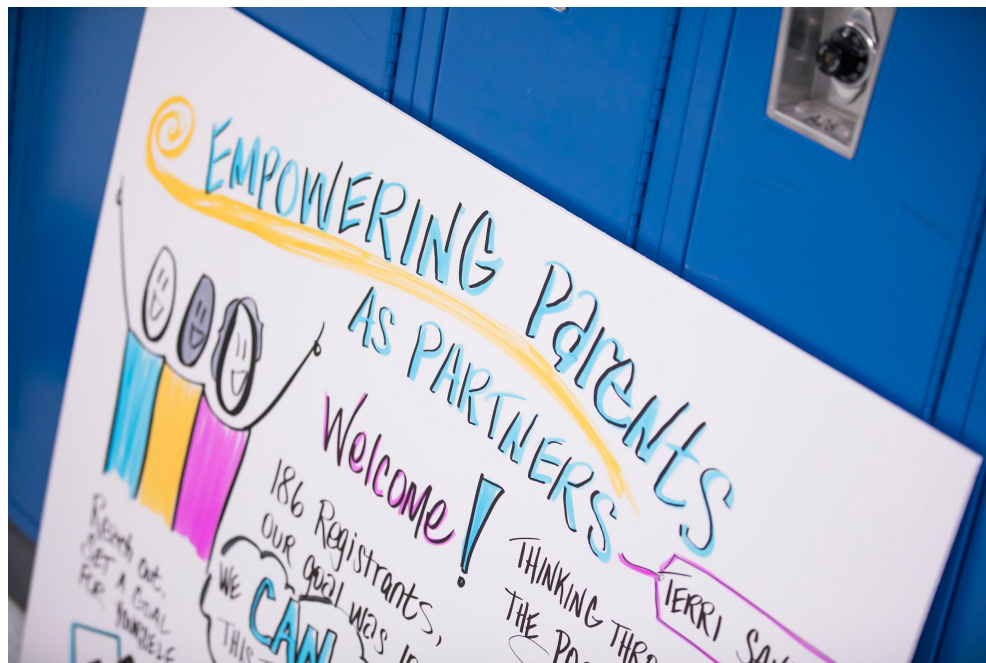 EMPOWERING Parents
AS PARTNERS
Welcome!
186 Registrants,
OUR goal was
WE CAN
THIS
Reach out,
SET A GOAL
FOR YOURSELF
THINKING
THE
TERRI